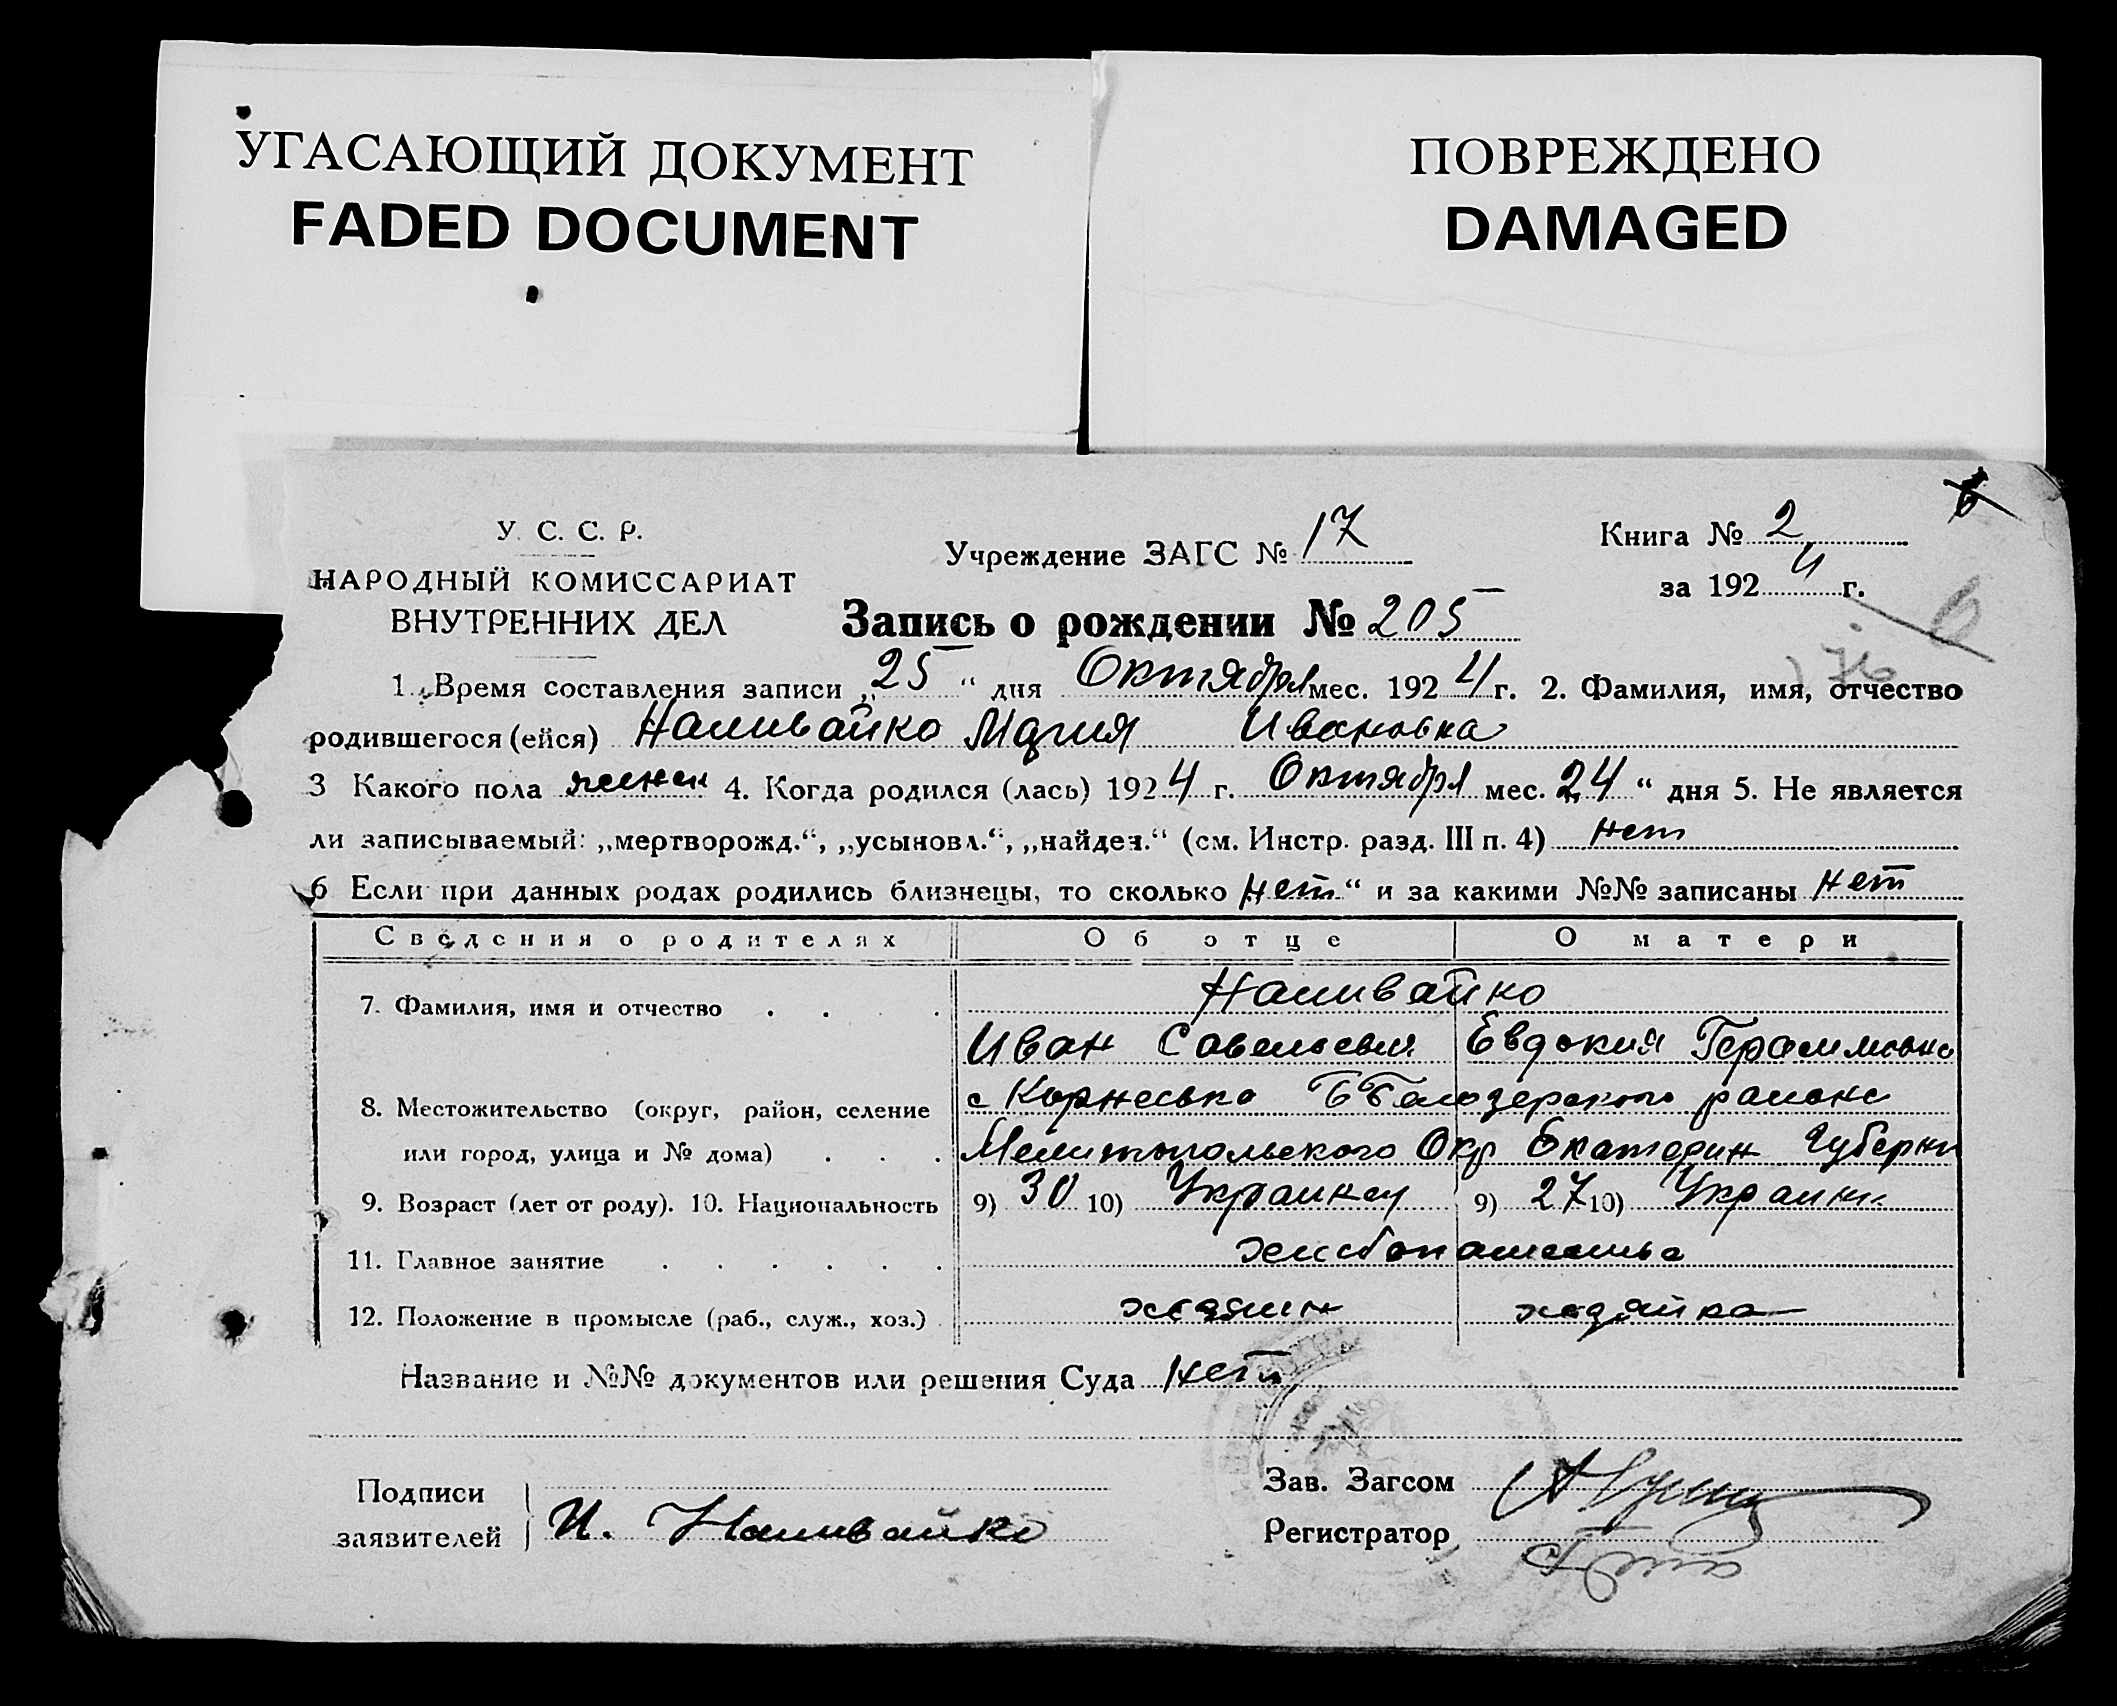 УГАСАЮЩИЙ ДОКУМЕНТ
FADED DOCUMENT
ПОВРЕЖДЕНО
DAMAGED
У. С. С. Р.
НАРОДНЫЙ КОМИССАРИАТ
ВНУТРЕННИХ ДЕЛ
Учреждение ЗАГС № 17
Книга № 2
за 1924 г.
Запись о рождении № 205
1. Время составления записи „25“ дня Октября мес. 1924 г. 2. Фамилия, имя, отчество
родившегося (ейся) Наливайко Мария Ивановна
3 Какого пола женск 4. Когда родился (лась) 1924 г. Октября мес. 24“ дня 5. Не является
ли записываемый: „мертворожд.“, „усыновл.“, „найден.“ (см. Инстр. разд. III п. 4) нет
6 Если при данных родах родились близнецы, то сколько нет“ и за какими №№ записаны нет
Сведения о родителях Об отце О матери
7. Фамилия, имя и отчество Наливайко
Иван Савельевич Евдокия Герасимовна
8. Местожительство (округ, район, селение с района
или город, улица и № дома) Мелитопольского Окр Екатерин Губерни
9. Возраст (лет от роду). 10. Национальность 9) 30 10) 9) 27 10)
11. Главное занятие хлебопашество
12. Положение в промысле (раб., служ., хоз.) хозяин хозяйка
Название и №№ документов или решения Суда нет
Подписи
заявителей И. Наливайко
Зав. Загсом
Регистратор